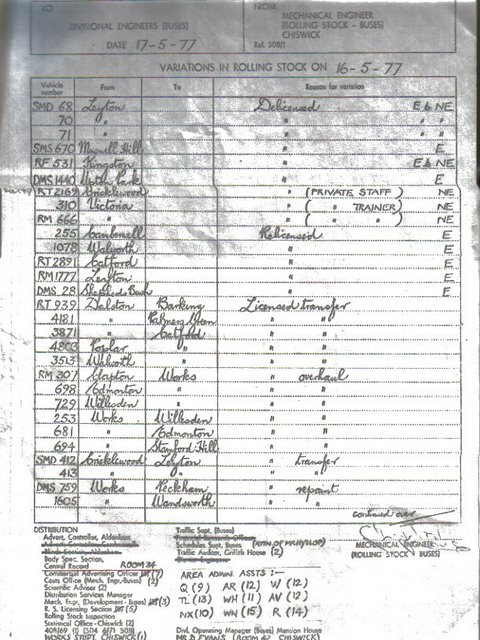 TO
FROM
DIVISIONAL ENGINEERS (BUSES)
MECHANICAL ENGINEER
(ROLLING STOCK - BUSES)
CHISWICK
DATE 17-5-77
Ref. 508/1
VARIATIONS IN ROLLING STOCK ON 16-5-77
Vehicle number From To Reason for variation
SMD 68 Leyton Delicensed E & NE
70 " " " "
71 " " " "
SMS 670 Muswell Hill " E
RF 531 Kingston " E & NE
DMS 1440 North Park " E
RT 2169 Cricklewood " (PRIVATE STAFF) NE
310 Victoria " ( " TRAINER) NE
RM 666 " " ( " " ) NE
255 Camberwell Relicensed E
1078 Walworth " E
RT 2891 Catford " E
RM 1777 Leyton " E
DMS 28 Shepherds Bush " E
RT 939 Dalston Barking Licensed transfer
4181 " Palmers Green " "
3871 " Catford " "
4803 Poplar " " "
3513 Walworth " " "
RM 307 Clapton Works " overhaul
698 Edmonton " " "
729 Willesden " " "
253 Works Willesden " "
681 " Edmonton " "
694 " Stamford Hill " "
SMD 412 Cricklewood Leyton " transfer
413 " " " "
DMS 759 Works Peckham " repaint
1605 " Wandsworth " "
continued over
MECHANICAL ENGINEER
(ROLLING STOCK - BUSES)
DISTRIBUTION
Advert. Controller, Aldenham
Body Spec. Section,
Central Record ROOM 34
Commercial Advertising Officer
Costs Office (Mech. Engr.-Buses) (2)
Scientific Adviser (2)
Distribution Services Manager
Mech. Engr. (Development - Buses) (3)
R. S. Licensing Section (5)
Rolling Stock Inspection
Statistical Office - Chiswick (2)
WORKS SUPT. CHISWICK (1)
Traffic Supt. (Buses)
Schedules Supt. (Buses)
Traffic Auditor, Griffith House (2)
AREA ADMIN. ASSTS :-
Q (9) AR (12) W (12)
TL (13) WH (11) AV (12)
NX (10) WN (15) R (14)
Divl. Operating Manager (Buses) Mansion House
MR D EVANS (ROOM 62 CHISWICK)